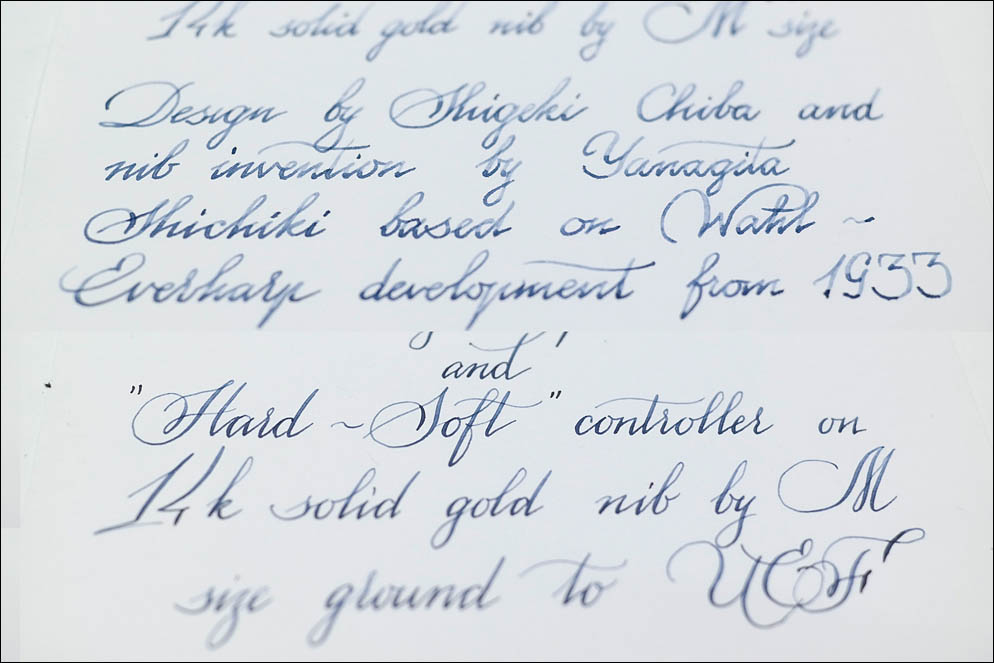 14k solid gold nib by M size
Design by Shigeki Chiba and
nib invention by Yanagita
Shichiki based on Wahl ~
Everharp development from 1933
and
"Hard ~ Soft" controller on
14k solid gold nib by M
size ground to UEF